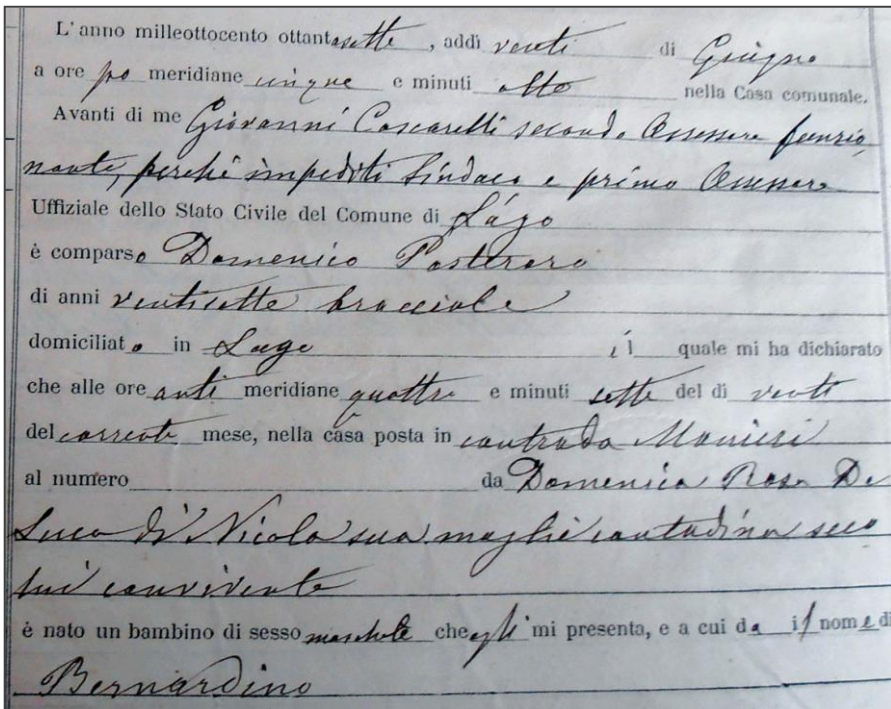 L'anno milleottocento ottantasette, addì venti di Giugno
a ore po meridiane cinque e minuti otto nella Casa comunale.
Avanti di me Giovanni Coscarelli secondo Assessore funzio,
nante, perchè impediti Sindaco e primo Assessore
Uffiziale dello Stato Civile del Comune di Lago
è comparso Domenico Posteraro
di anni ventisette bracciale
domiciliato in Lago il quale mi ha dichiarato
che alle ore anti meridiane quattro e minuti sette del dì venti
del corrente mese, nella casa posta in contrada Manieri
al numero da Domenica Rosa De
Luca di Nicola sua moglie contadina seco
lui convivente
è nato un bambino di sesso maschile che egli mi presenta, e a cui da il nome di
Bernardino